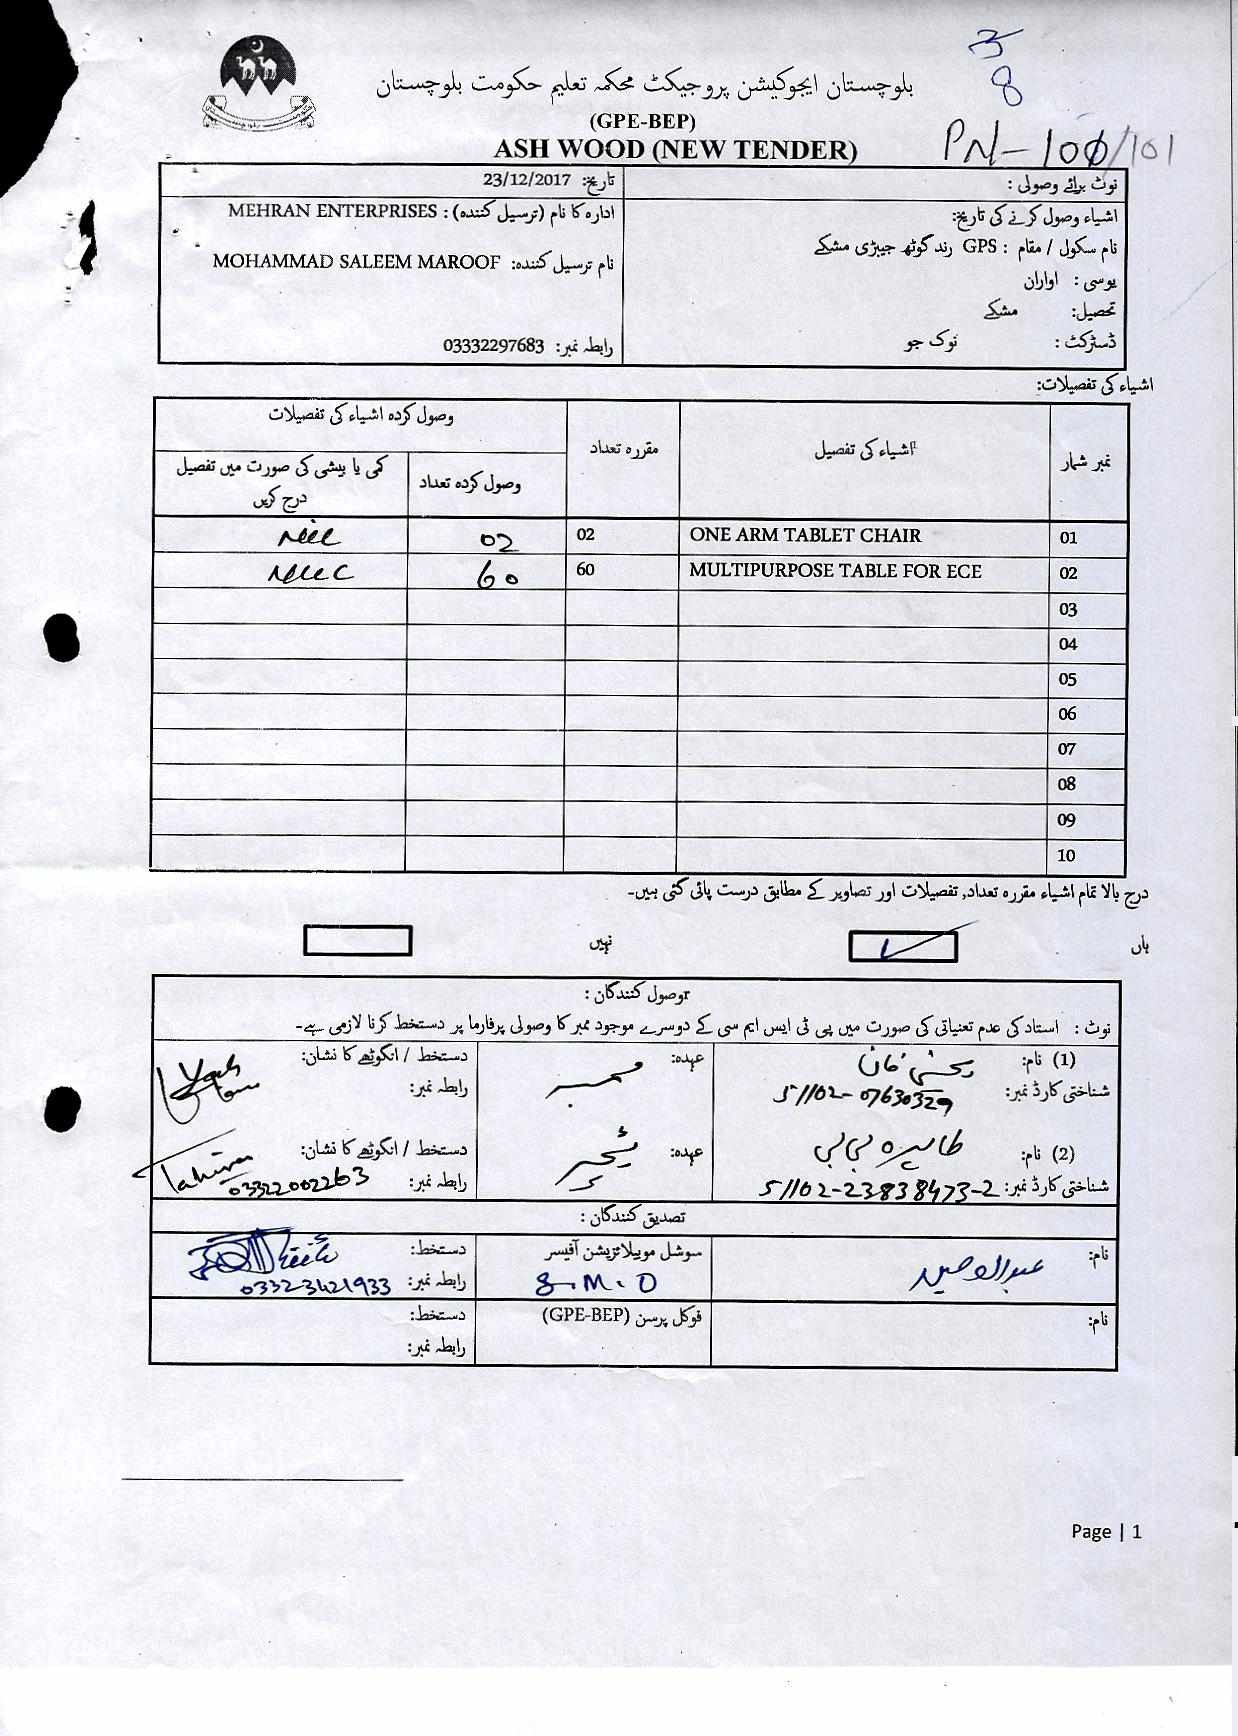 3
8
بلوچستان ایجوکیشن پروجیکٹ محکمہ تعلیم حکومت بلوچستان
(GPE-BEP)
ASH WOOD (NEW TENDER)
PN-100/101
نوٹ برائے وصولی :
تاریخ: 23/12/2017
اشیاء وصول کرنے کی تاریخ:
نام سکول / مقام : GPS رند گوٹھ جیبڑی مشکے
یوسی : اواران
تحصیل: مشکے
ڈسٹرکٹ : نوک جو
ادارہ کا نام (ترسیل کنندہ) : MEHRAN ENTERPRISES
نام ترسیل کنندہ: MOHAMMAD SALEEM MAROOF
رابطہ نمبر: 03332297683
اشیاء کی تفصیلات:
نمبر شمار اشیاء کی تفصیل مقررہ تعداد وصول کردہ اشیاء کی تفصیلات
وصول کردہ تعداد کمی یا بیشی کی صورت میں تفصیل درج کریں
01 ONE ARM TABLET CHAIR 02 02 Nil
02 MULTIPURPOSE TABLE FOR ECE 60 60
03
04
05
06
07
08
09
10
درج بالا تمام اشیاء مقررہ تعداد, تفصیلات اور تصاویر کے مطابق درست پائی گئی ہیں۔
ہاں نہیں
وصول کنندگان :
نوٹ : استاد کی عدم تعنیاتی کی صورت میں پی ٹی ایس ایم سی کے دوسرے موجود ممبر کا وصولی پرفارما پر دستخط کرنا لازمی ہے۔
(1) نام: خان عہدہ: ممبر دستخط / انگوٹھے کا نشان:
شناختی کارڈ نمبر: 51102-07630329 رابطہ نمبر:
(2) نام: طاہرہ بی بی عہدہ: ٹیچر دستخط / انگوٹھے کا نشان: Tahira
شناختی کارڈ نمبر: 51102-23838473-2 رابطہ نمبر: 03322002263
تصدیق کنندگان :
نام: عبدالوحید سوشل موبیلائزیشن آفیسر دستخط:
S.M.O رابطہ نمبر: 03323421933
نام: فوکل پرسن (GPE-BEP) دستخط:
رابطہ نمبر:
Page | 1